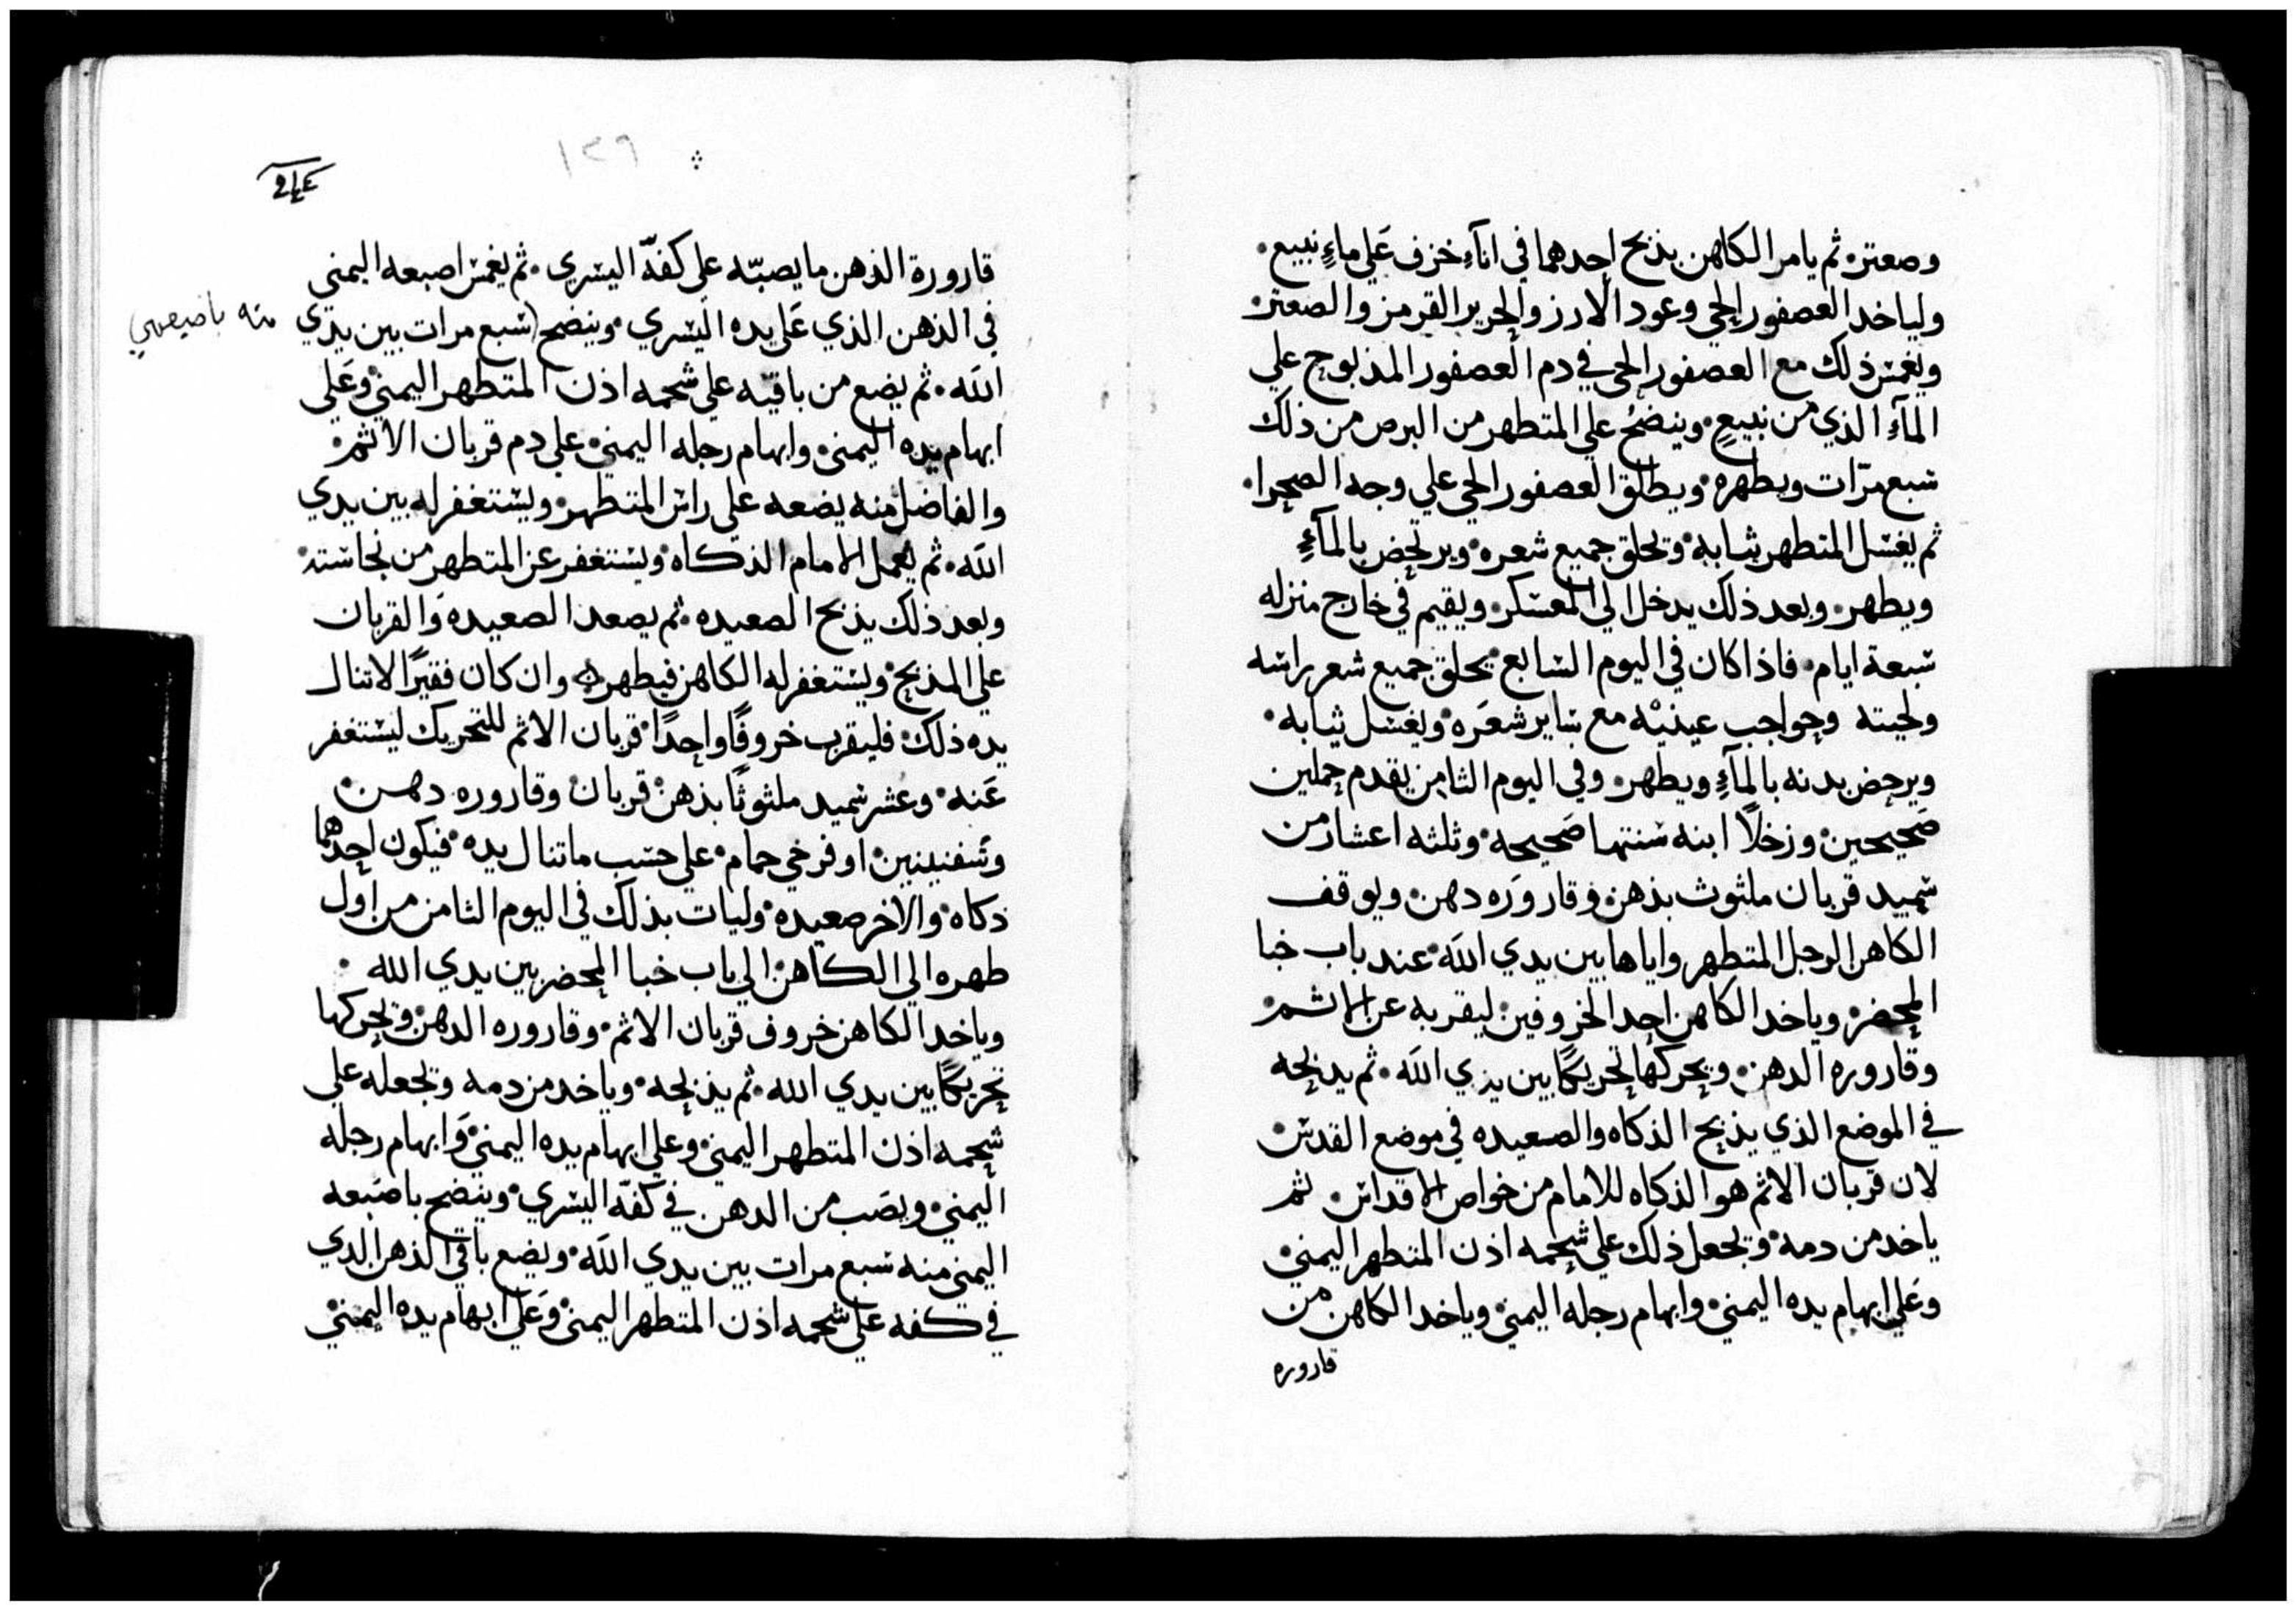 وصعتر. ثم يامر الكاهن بذبح احدهما في انآءِ خزف عَلي ماءٍ نبيع.
ولياخد العصفور الحي وعود الارز والحرير القرمز والصعتر.
ويغمس ذلك مع العصفور الحي في دم العصفور المذبوح علي
المآءِ الذي من نبيعٍ. وينضحُ علي المتطهر من البرص من ذلك
سبع مرّات ويطهره. ويطلق العصفور الحي علي وجه الصحرا.
ثم يغسل المتطهر ثيابه. ويحلق جميع شعره. ويرتحض بالمآءِ
ويطهر. وبعد ذلك يدخل الي المعسكر. ويقيم في خارج منزله
سبعة ايام. فاذا كان في اليوم السابع يحلق جميع شعر راسه
ولحيته وحواجب عينيْه مع ساير شعَره. ويغسل ثيابه.
ويرحض بدنه بالمآءِ ويطهر. وفي اليوم الثامن يقدم حملين
صَحيحين. ورخلاً ابنه سنتها صَحيحه. وثلثه اعشار من
سميد قربان ملثوث بذهن. وقاروَره دهن. ويوقف
الكاهن الرجل المتطهر واياها بين يدي اللَه. عند باب خبا
المحضر. وياخد الكاهن احد الخروفين. ليقربه عن الاثم.
وقاروره الدهن. ويحركها تحريكًا بين يدي اللَه. ثم يدبحه
في الموضع الذي يذبح الذكاه والصعيده في موضع القدس.
لان قربان الاثم هو الذكاه للامام من خواص الاقداس. ثم
ياخد من دمه. ويجعل ذلك علي شحمه اذن المتطهر اليمني.
وعَلي ابهام يده اليمني. وابهام رجله اليمني. وياخد الكاهن من
قاروره
١٢٦
قارورة الذهن ما يصبّه علي كفّه اليسري. ثم يغمس اصبعه اليمني
في الذهن الذي عَلي يده اليسري. وينضح (سبع مرات بين يدي
منه باصبعه
اللَه. ثم يضع من باقيّه علي شحمه اذن المتطهر اليمني. وعَلي
ابهام يده اليمني. وابهام رجله اليمني. علي دم قربان الاثم.
والفاضل منه يضعه علي راس المتطهر. ويستغفر له بين يدي
اللَه. ثم يعمل الامام الذكاه. ويستغفر عن المتطهر من نجاسته.
وبعد ذلك يذبح الصعيده. ثم يصعد الصعيده وَالقربان
علي المذبح. ويستغفر له الكاهن فيطهر. وان كان فقيرًا لاتنال
يده ذلك. فليقرب خروفًا واحدًا. قربان الاثم للتحريك ليستغفر
عَنه. وعشر سميد ملثوثًا بذهن. قربان. وقاروره دهن.
وشفنينين. او فرخي حمام. علي حسب ماتنال يده. فيكون احدهما
ذكاه. والاخر صعيده. وليات بذلك في اليوم الثامن من اول
طهره الي الكاهن. الي باب خبا المحضر بين يدي الله.
وياخد الكاهن خروف قربان الاثم. وقاروره الدهن. ويحركها
تحريكًا بين يدي الله. ثم يذبحه. وياخد من دمه ويجعله علي
شحمه اذن المتطهر اليمني. وعلي ابهام يده اليمني. وَابهام رجله
اليمني. ويصَب من الدهن في كفّه اليسري. وينضح باصَبعه
اليمني منه سبع مرات بين يدي اللَه. ويضع باقي الذهن الدي
في كفه علي شحمه اذن المتطهر اليمني. وَعَلي ابهام يده اليمني.